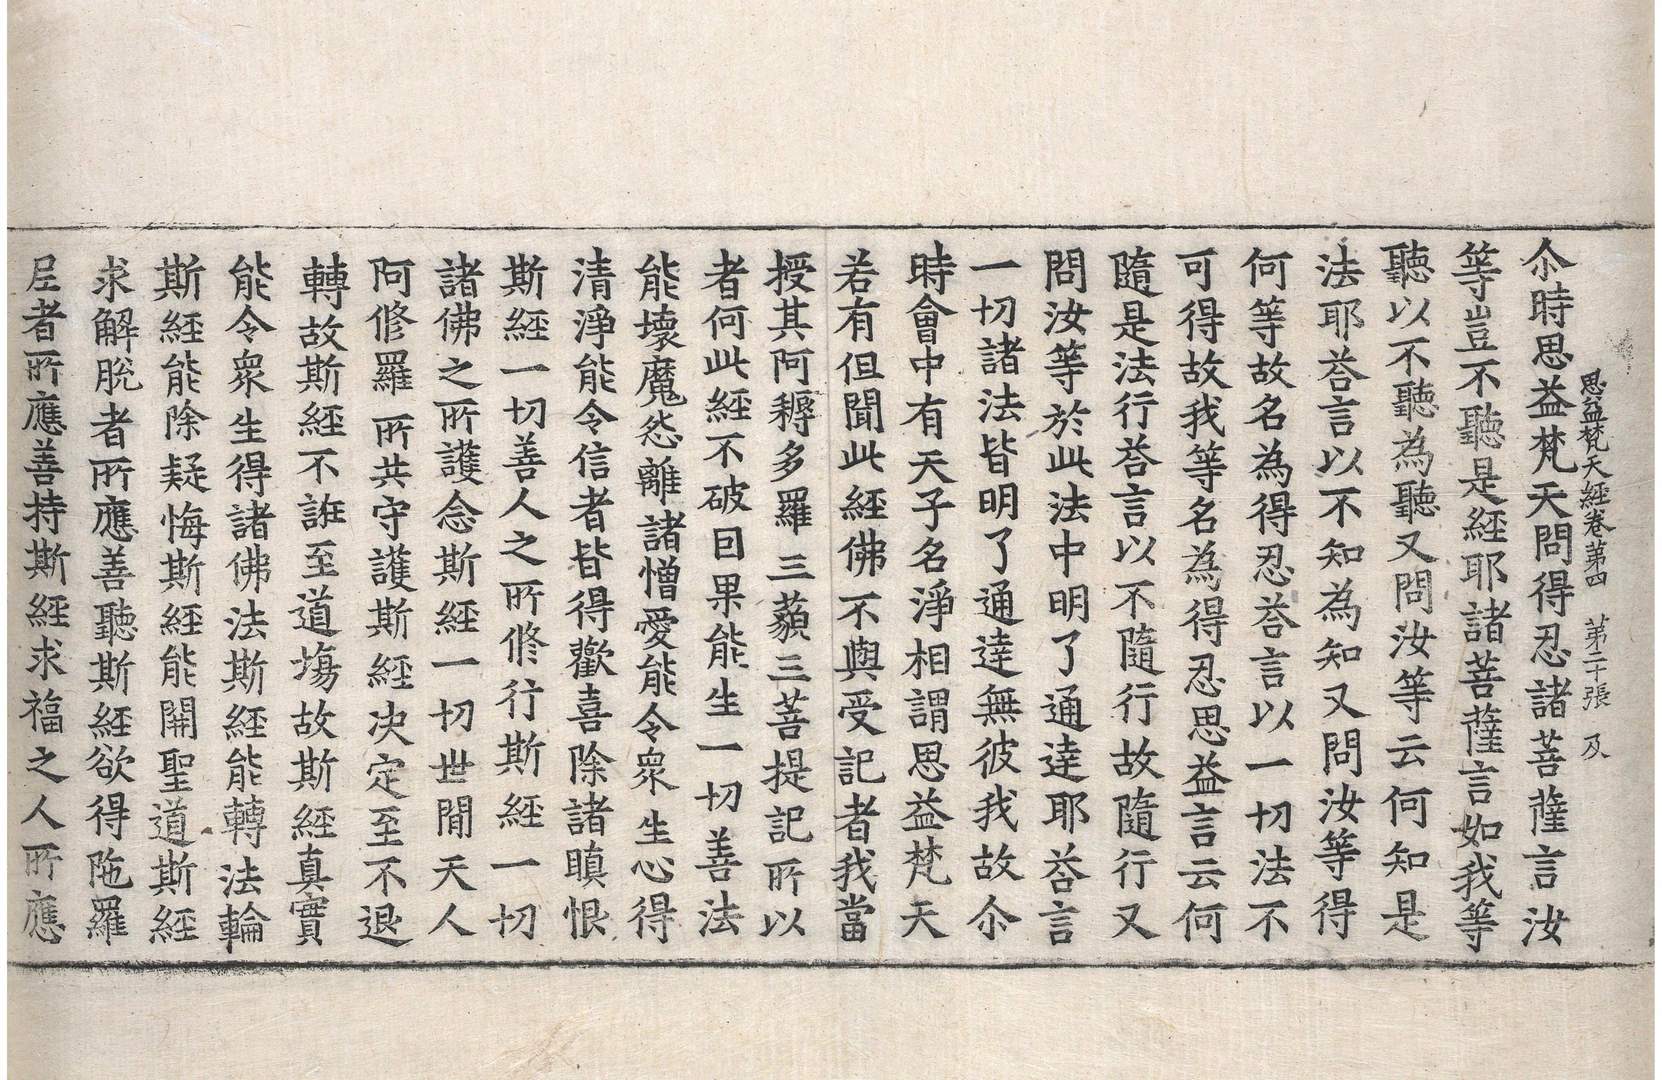 思益梵天經卷第四　第二十張　及
尒時思益梵天問得忍諸菩薩言汝
等豈不聽是經耶諸菩薩言如我等
聽以不聽為聽又問汝等云何知是
法耶荅言以不知為知又問汝等得
何等故名為得忍荅言以一切法不
可得故我等名為得忍思益言云何
隨是法行荅言以不隨行故隨行又
問汝等於此法中明了通達耶荅言
一切諸法皆明了通達無彼我故尒
時會中有天子名淨相謂思益梵天
若有但聞此經佛不與受記者我當
授其阿耨多羅三藐三菩提記所以
者何此經不破因果能生一切善法
能壞魔怨離諸憎愛能令眾生心得
清淨能令信者皆得歡喜除諸瞋恨
斯經一切善人之所修行斯經一切
諸佛之所護念斯經一切世間天人
阿修羅所共守護斯經决定至不退
轉故斯經不誑至道場故斯經真實
能令眾生得諸佛法斯經能轉法輪
斯經能除疑悔斯經能開聖道斯經
求解脫者所應善聽斯經欲得陁羅
尼者所應善持斯經求福之人所應